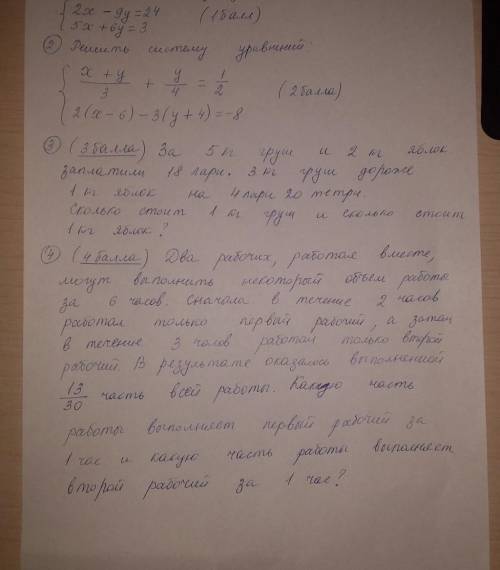 2x - 9y = 24 (1 балл)
5x + 6y = 3
② Решить систему уравнений:
(x + y)/3 + y/4 = 1/2 (2 балла)
2(x - 6) - 3(y + 4) = -8
③ (3 балла) За 5 кг груш и 2 кг яблок
заплатили 18 лари. 3 кг груш дороже
1 кг яблок на 4 лари 20 тетри.
Сколько стоит 1 кг груш и сколько стоит
1 кг яблок?
④ (4 балла) Два рабочих, работая вместе,
могут выполнить некоторый объем работы
за 6 часов. Сначала в течение 2 часов
работал только первый рабочий, а затем
в течение 3 часов работал только второй
рабочий. В результате оказалось выполненной
13/30 часть всей работы. Какую часть
работы выполняет первый рабочий за
1 час и какую часть работы выполняет
второй рабочий за 1 час?